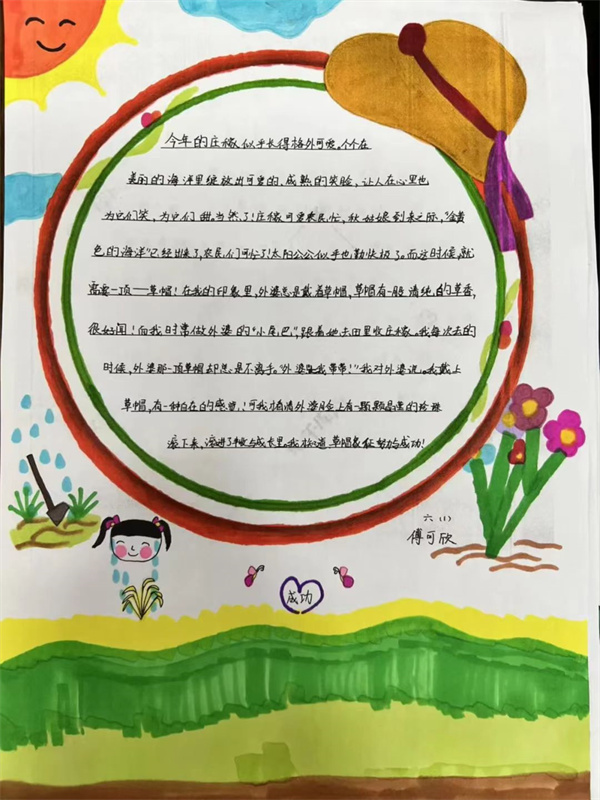 今年的庄稼似乎长得格外可爱。个个在
美丽的海洋里绽放出可爱的、成熟的笑脸,让人在心里也
为它们笑,为它们甜。当然了!庄稼可爱农民忙,秋姑娘到来之际,“金黄
色的海洋”已经出来了,农民们可忙了!太阳公公似乎也勤快极了。而这时候,就
需要一顶——草帽!在我的印象里,外婆总是戴着草帽,草帽有一股清纯的草香,
很好闻!而我时常做外婆的“小尾巴”,跟着她去田里收庄稼。我每次去的
时候,外婆那一顶草帽却总是不离手。“外婆让我带带!”我对外婆说。我戴上
草帽,有一种自在的感觉!可我看清外婆脸上有一颗颗晶莹的珍珠
滚下来,滚进了种与成长里。我知道,草帽象征努力与成功!
六(1)
傅可欣
成功